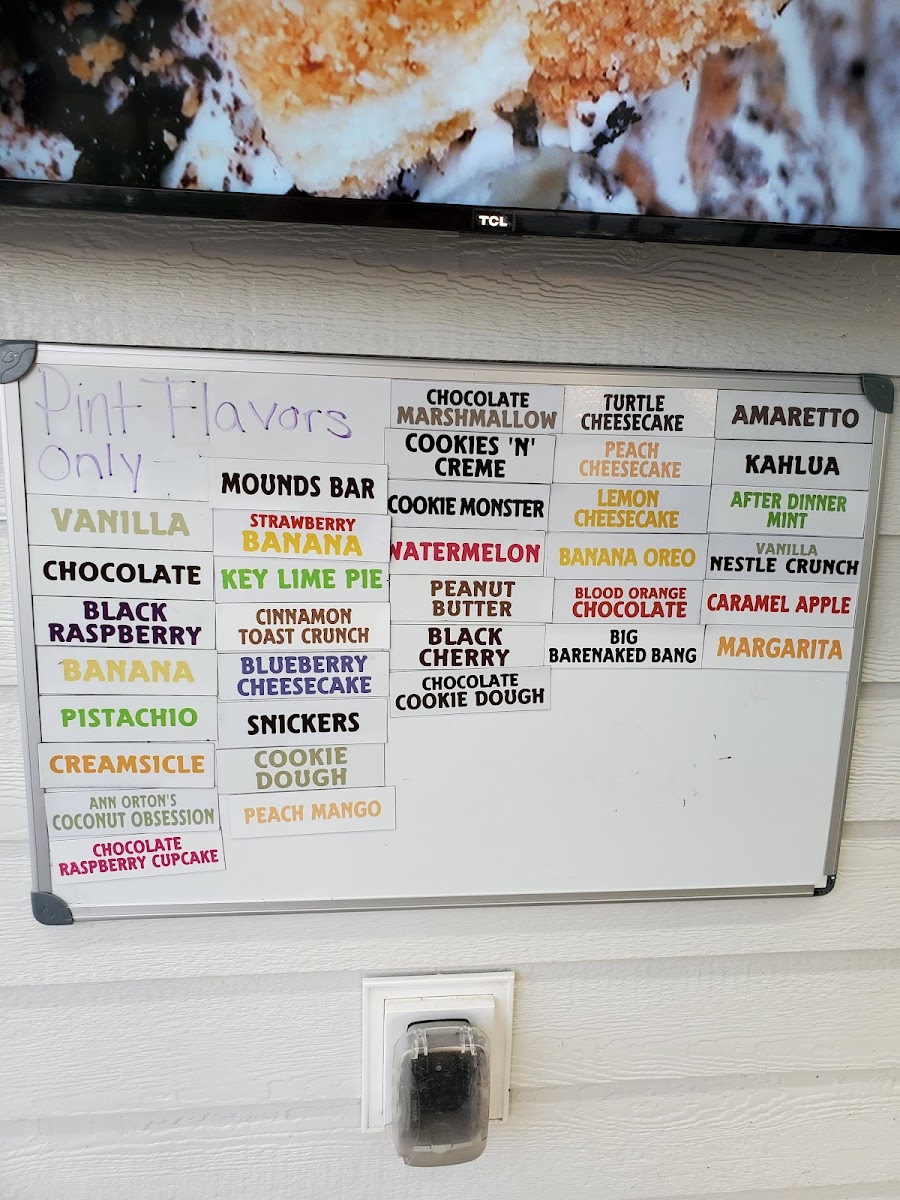 TCL
Pint Flavors
Only
VANILLA
CHOCOLATE
BLACK
RASPBERRY
BANANA
PISTACHIO
CREAMSICLE
ANN ORTON'S
COCONUT OBSESSION
CHOCOLATE
RASPBERRY CUPCAKE
MOUNDS BAR
STRAWBERRY
BANANA
KEY LIME PIE
CINNAMON
TOAST CRUNCH
BLUEBERRY
CHEESECAKE
SNICKERS
COOKIE
DOUGH
PEACH MANGO
CHOCOLATE
MARSHMALLOW
COOKIES 'N'
CREME
COOKIE MONSTER
WATERMELON
PEANUT
BUTTER
BLACK
CHERRY
CHOCOLATE
COOKIE DOUGH
TURTLE
CHEESECAKE
PEACH
CHEESECAKE
LEMON
CHEESECAKE
BANANA OREO
BLOOD ORANGE
CHOCOLATE
BIG
BARENAKED BANG
AMARETTO
KAHLUA
AFTER DINNER
MINT
VANILLA
NESTLE CRUNCH
CARAMEL APPLE
MARGARITA